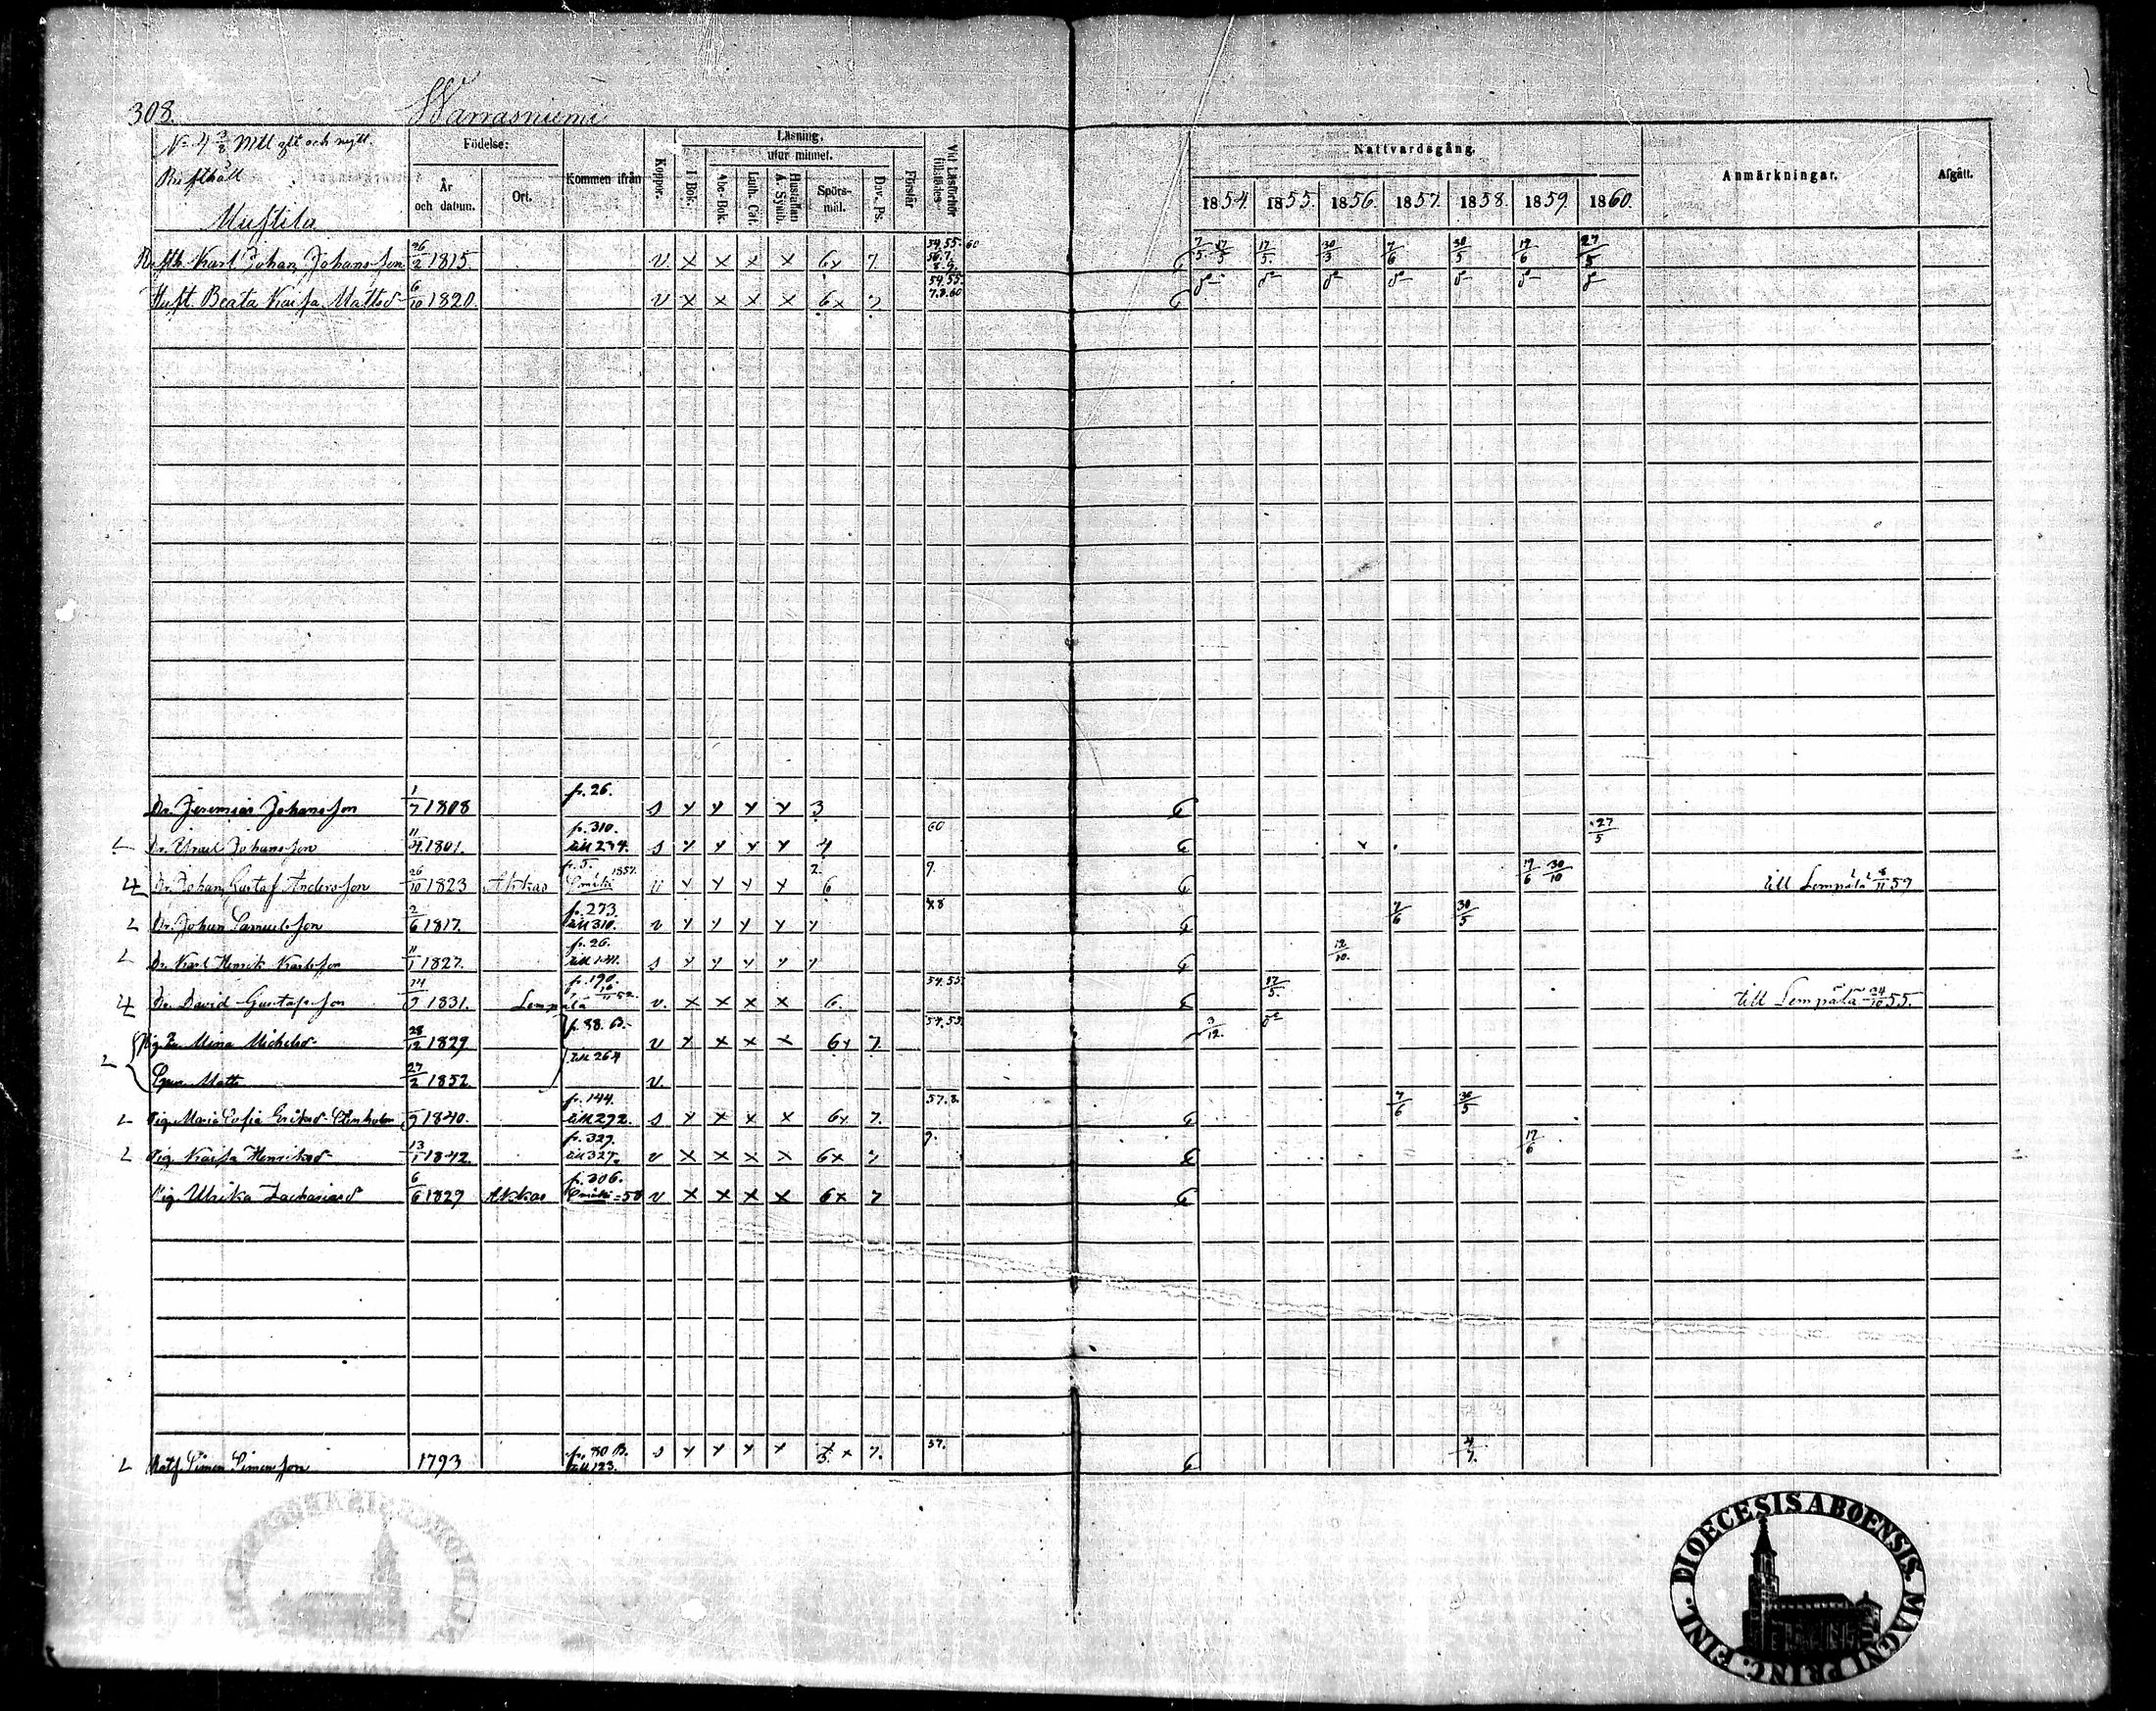 308. Warrasniemi
N:o 4 3/8 Mtl glt och nytt.
Rusthåll
Mustila
Födelse:
År och datum.
Ort.
Kommen ifrån
Koppor.
Läsning.
I Bok.
utur minnet.
Abc-Bok.
Luth. Cat.
Hustaflan A.-Symb.
Spörs-mål.
Dav. Ps.
Förstår
Vid Läsförhör tillstädes
Nattvardsgång.
1854. 1855. 1856. 1857. 1858. 1859 1860.
Anmärkningar.
Afgått.
Rusth. Karl Johan Johansson 26/2 1815. v. x x x x 6x 7. 54.55. 60 7/5 17/5 17/5. 30/3 7/6 30/5 19/6 27/5
Hust. Beata Kaisa Mattsd 6/10 1820. v x x x x 6x 7. 54.55. 7.8.60
Dr. Jeremias Johansson 1/7 1808 fr. 26. s x x x x 3
Dr. Israel Johansson 11/4 1801. fr. 310. till 234. s x x x x 4 60 27/5
Dr. Johan Gustaf Andersson 26/10 1823 Akkas fr. 5. 1857. v x x x x 2. 6 9. 19/6 30/10 till Lempälä 8/11 59
Dr. Johan Samuelsson 2/6 1817. fr. 273. till 310. v x x x x 7.8 7/6 30/5
Dr. Karl Henrik Karlsson 11/1 1827. fr. 26. till 141. s x x x x 12/10.
Dr. David Gustafsson 1831. Lempälä fr. 190. v. x x x x 6. 54.55. 17/5. till Lempälä 24/10 55.
Mina Michelsd 28/12 1829 fr. 88. B. v x x x x 6x 7. 54.55. 3/12.
Matts 27/2 1852. till 264 v.
Pig. Maria Sofia Eriksd Stenholm 9 1840. fr. 144. till 272. s x x x x 6x 7. 57.8. 7/6 30/5
Pig. Kaisa Henriksd 13/1 1842. fr. 327. till 327. v x x x x 6x 7 9. 19/6
Pig. Ulrika Zachariasd 6/6 1829 Akkas fr. 306. v x x x x 6x 7
Simon Simonsson 1793 fr. 80 B. till 123. s x x x x x 7. 57. 4/7.
DIOECESIS ABOENSIS. MAGNI PRINC. FINL.